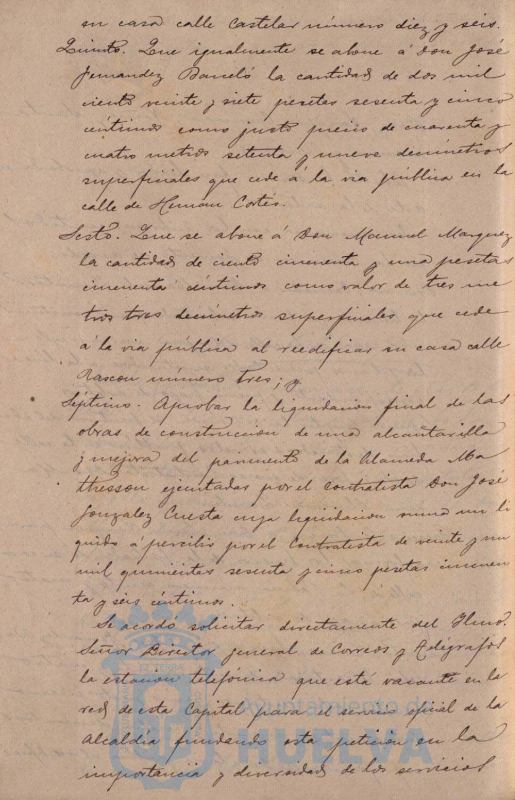 su casa calle Castelar número diez y seis.
Quinto. Que igualmente se abone á Don José
Fernandez Barceló la cantidad de dos mil
ciento veinte y siete pesetas sesenta y cinco
céntimos como justo precio de cuarenta y
cuatro metros setenta y nueve decimetros
superficiales que cede á la via pública en la
calle de Hernan Cortés.
Sesto. Que se abone á Don Manuel Marquez
la cantidad de ciento cincuenta y una pesetas
cincuenta céntimos como valor de tres me
tros tres decimetros superficiales que cede
á la via pública al reedificar su casa calle
Rascon número tres; y
Séptimo. Aprobar la liquidacion final de las
obras de construccion de una alcantarilla
y mejora del pavimento de la Alameda Ma
thesson ejecutadas por el contratista Don José
Gonzalez Cuesta cuya liquidacion suma un li
quido á percibir por el Contratista de veinte y un
mil quinientas sesenta y cinco pesetas cincuen
ta y seis céntimos.
Se acordó solicitar directamente del Ilmo.
Señor Director general de Correos y Telégrafos
la estacion telefónica que está vacante en la
red de esta Capital para el servicio oficial de la
Alcaldía fundando esta peticion en la
importancia y diversidad de los servicios
Ayuntamiento de
HUELVA